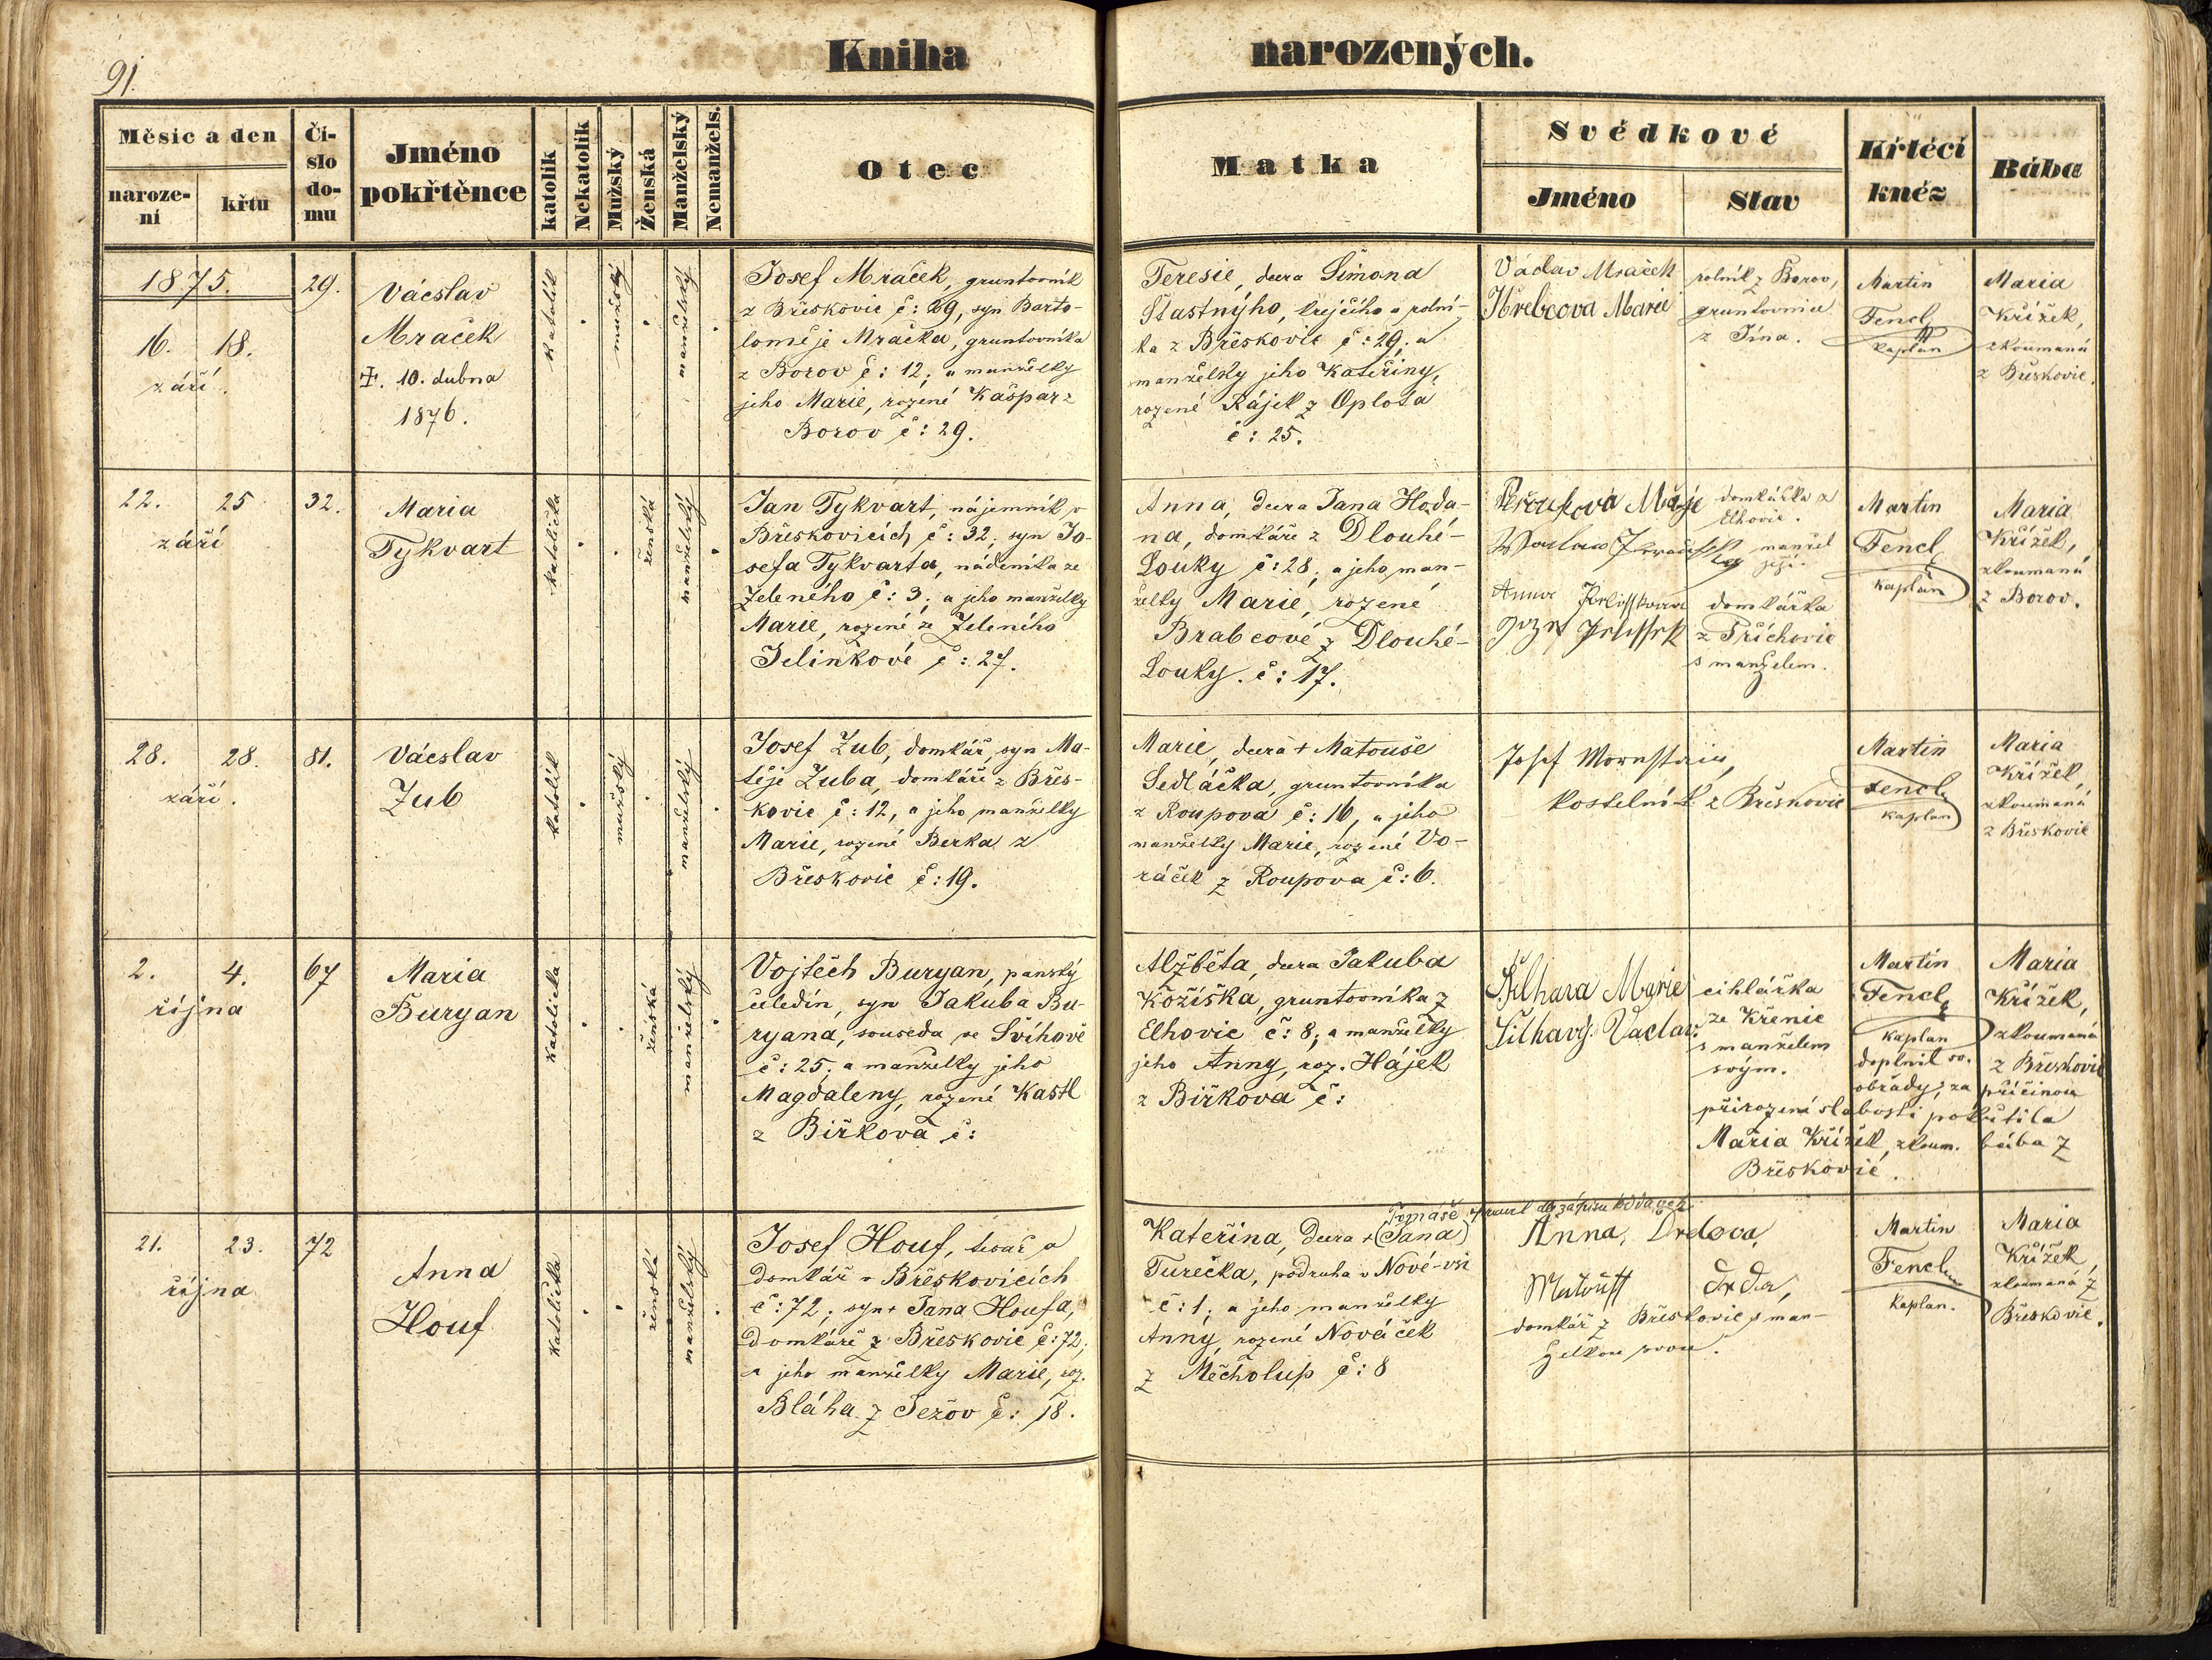 91.
Kniha narozených.
Měsíc a den
naroze-
ní
křtu
Čí-
slo
do-
mu
Jméno
pokřtěnce
katolík
Nekatolík
Mužský
Ženská
Manželský
Nemanžels.
Otec
Matka
Svědkové
Jméno
Stav
Křtécí
kněz
Bába
1875.
16. 18.
září.
29.
Vácslav
Mraček
†. 10. dubna
1876.
katolík
mužský
manželský
Josef Mraček, gruntovník
z Břeskovic č: 29, syn Barto-
loměje Mračka, gruntovníka
z Borov č: 12; a manželky
jeho Marie, rozené Kašpar z
Borov č: 29.
Teresie, dcera Šimona
Šťastnýho, krejčího a rolní-
ka z Břeskovic č: 29; a
manželky jeho Kateřiny,
rozené Rájek z Oplota
č: 25.
Václav Mraček
Hřebcova Marie
rolník z Borov,
gruntovnice
z Jína.
Martin
Fencl
kaplan
Maria
Křížek,
zkoumaná
z Břeskovic.
22. 25
září
32.
Maria
Tykvart
katolička
ženská
manželský
Jan Tykvart, nájemník v
Břeskovicích č: 32; syn Jo-
sefa Tykvarta, nádeníka ze
Zeleného č: 3; a jeho manželky
Marie, rozené ze Zeleného
Jelínkové č: 27.
Anna, dcera Jana Hoda-
na, domkáře z Dlouhé-
Louky č: 28; a jeho man-
želky Marie, rozené
Brabcové z Dlouhé-
Louky. č: 17.
domkářka z
Elhovic.
manžel
její.
Anna
domkářka
z Příchovic
s manželem.
Martin
Fencl
kaplan
Maria
Křížek,
zkoumaná
z Borov.
28. 28.
září.
81.
Vácslav
Zub
katolík
mužský
manželský
Josef Zub, domkář, syn Ma-
těje Zuba, domkáře z Břes-
kovic č: 12, a jeho manželky
Marie, rozené Berka z
Břeskovic č: 19.
Marie, dcera † Matouše
Sedláčka, gruntovníka
z Roupova č: 16, a jeho
manželky Marie, rozené Vo-
ráček z Roupova č: 6.
Josef
kostelník z Břeskovic
Martin
Fencl
kaplan
Maria
Křížek
zkoumaná
z Břeskovic
2. 4.
října
67
Maria
Buryan
katolička
ženská
manželský
Vojtěch Buryan, panský
čeledín, syn Jakuba Bu-
ryana, souseda ve Švihově
č: 25; a manželky jeho
Magdaleny, rozené Kastl
z Biřkova č:
Alžběta, dcera Jakuba
Kožíška, gruntovníka z
Elhovic č: 8; a manželky
jeho Anny, roz. Hájek
z Biřkova č:
Šilhava Marie
Šilhavý Vaclav
cihlářka
ze Křenic
s manželem
svým.
Martin
Fencl
kaplan
doplnil sv.
obřady; za příčinou
přirozené slabosti pokřtila
Maria Křížek, zkoum. bába z
Břeskovic.
Maria
Křížek,
zkoumaná
z Břeskovic
21. 23.
října
72
Anna
Houf
katolička
ženská
manželský
Josef Houf, tesař a
domkář v Břeskovicích
č: 72; syn † Jana Houfa,
domkáře z Břeskovic č: 72;
a jeho manželky Marie, roz.
Bláha z Ježov č: 18.
Tomáše
Kateřina, dcera † (Jana)
Turečka, podruha v Nové-vsi
č: 1; a jeho manželky
Anny, rozené Nováček
z Měcholup č: 8
Anna, Drdova,
Matouš Drda,
domkář z Břeskovic s man-
želkou svou.
Martin
Fencl
kaplan.
Maria
Křížek,
zkoumaná z
Břeskovic.